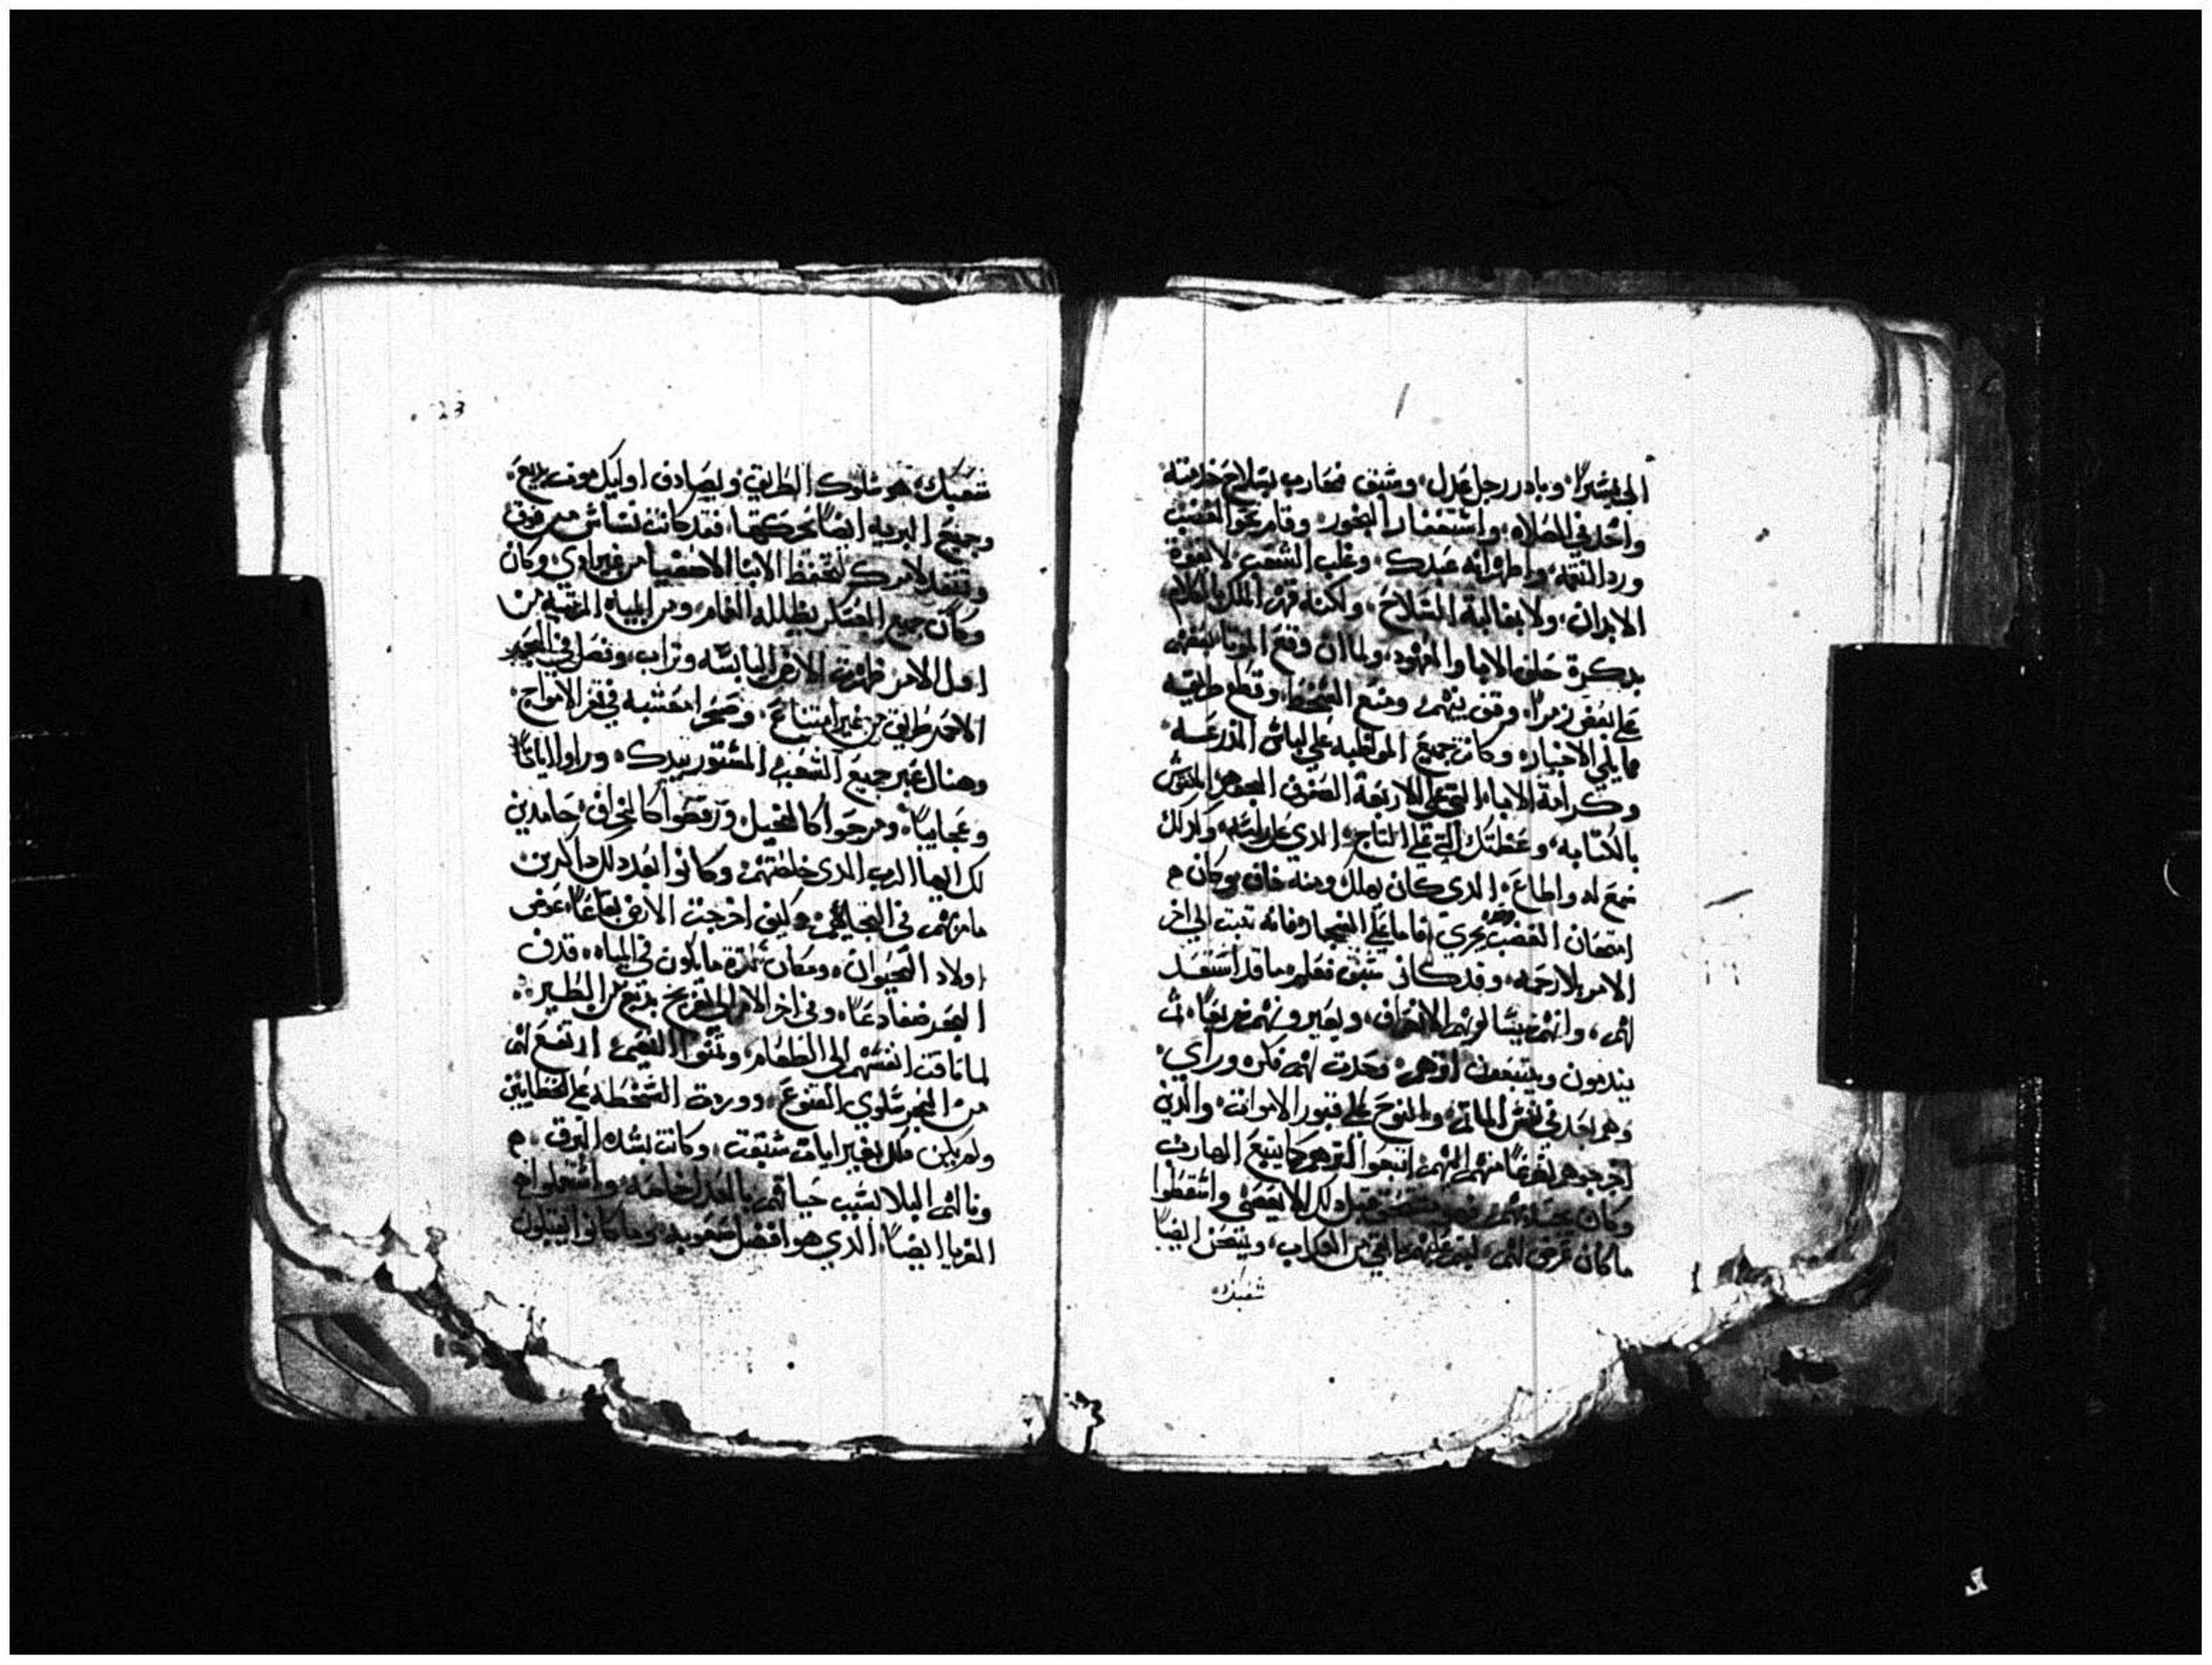 الي يسيراً، وبادر رجل عدل، وسبق فحارب بسلاح خدمته
واخد في الصلاه، واستحضار البخور، وقام نحو الغضب
ورد النقمه، واظهر انه عبدك، وغلب الشعب لا بقوة
الابدان، ولا بغالبة السلاح، ولكنه قهر الملك بالكلام
بدكرة حلف الابا والعهود، ولما ان وقع الموتا بعضهم
علي بعض زمراً، وقف بينهم، ومنع السخط، وقطع طريقه
مما يلي الاخيار، وكانت جميع المواظبه علي لباس المدرعه
وكرامة الاباء التي علي الاربعة الصفوف الجوهر المنقوش
بالكتابه، وعظمتك التي علي التاج، الدي علي راسه، ولدلك
خمع له واطاع، الدي كان يهلك ومنه خاف، وكان
امتحان الغضب يجري، فاما علي الفجار فانه تبت الي اخر
الامر بلا رحمه، وقد كان سبق فعلم ما قد استعد
لهم، وانهم يسالونهم الانصراف، ويصيرونهم سريعاً، تم
يندمون ويتبعون اثرهم، فحدت لهم فكر وراي
وهم بعد في نفس الماتم، والنوح علي قبور الاموات، والدين
اخرجوهم تضرعاً منهم اليهم، اتبعوا اثرهم كما يتبع الهارب
وكان قبل دلك لا ينقضي واسقطوا
ما كان عرض لهم، ما بقي من العداب، ويمتحن ايضاً
شعبك
23
شعبك، هو سلوك الطريق، ويصادف اوليك موت بديع
وجميع البريه ايضاً بحركتها، فقد كانت تساس من فوق
وتنفد لامرك لتحفظ الابنا الاصفيا من غير اوي، وكان
وكان جميع العسكر يظلله الغمام، ومن المياه المرتفعه من
اصل الامر ظهرت الارض اليابسه وتراب، وفصل في البحر
الاحمر طريق من غير امتناع، وصحرا معشبه في قعر الامواج
وهناك عبر جميع الشعب المستور بيدك، وراوا اياتاً
وعجايباً، ومرحوا كالخيل، ورقصوا كالخراف، حامدين
لك ايها الرب الدي خلصتهم، وكانوا بعد لدلك داكرين
ما نزل بهم في الجاليه، وكيف اخرجت الارض بعاعاً، عوض
اولاد الحيوان، ومكان كثرة ما يكون في المياه، قدف
البحر ضفادعاً، وفي اخر الامر الي تفريخ بديع من الطير
لما تاقت انفسهم الي الطعام، وتمنوا النعيم، ارتفع لهم
من البحر سلوي القنوع، ووردة السخطه علي الخطايين
ولم يكن دلك بغير ايات سبقت، وكانت بشده البرق
ونالهم البلا بسبب حياتهم بالعدل خاصه، واستعملوا
الغربا ايضاً، الدي هو افضل صعوبه، وما كانوا يقبلون